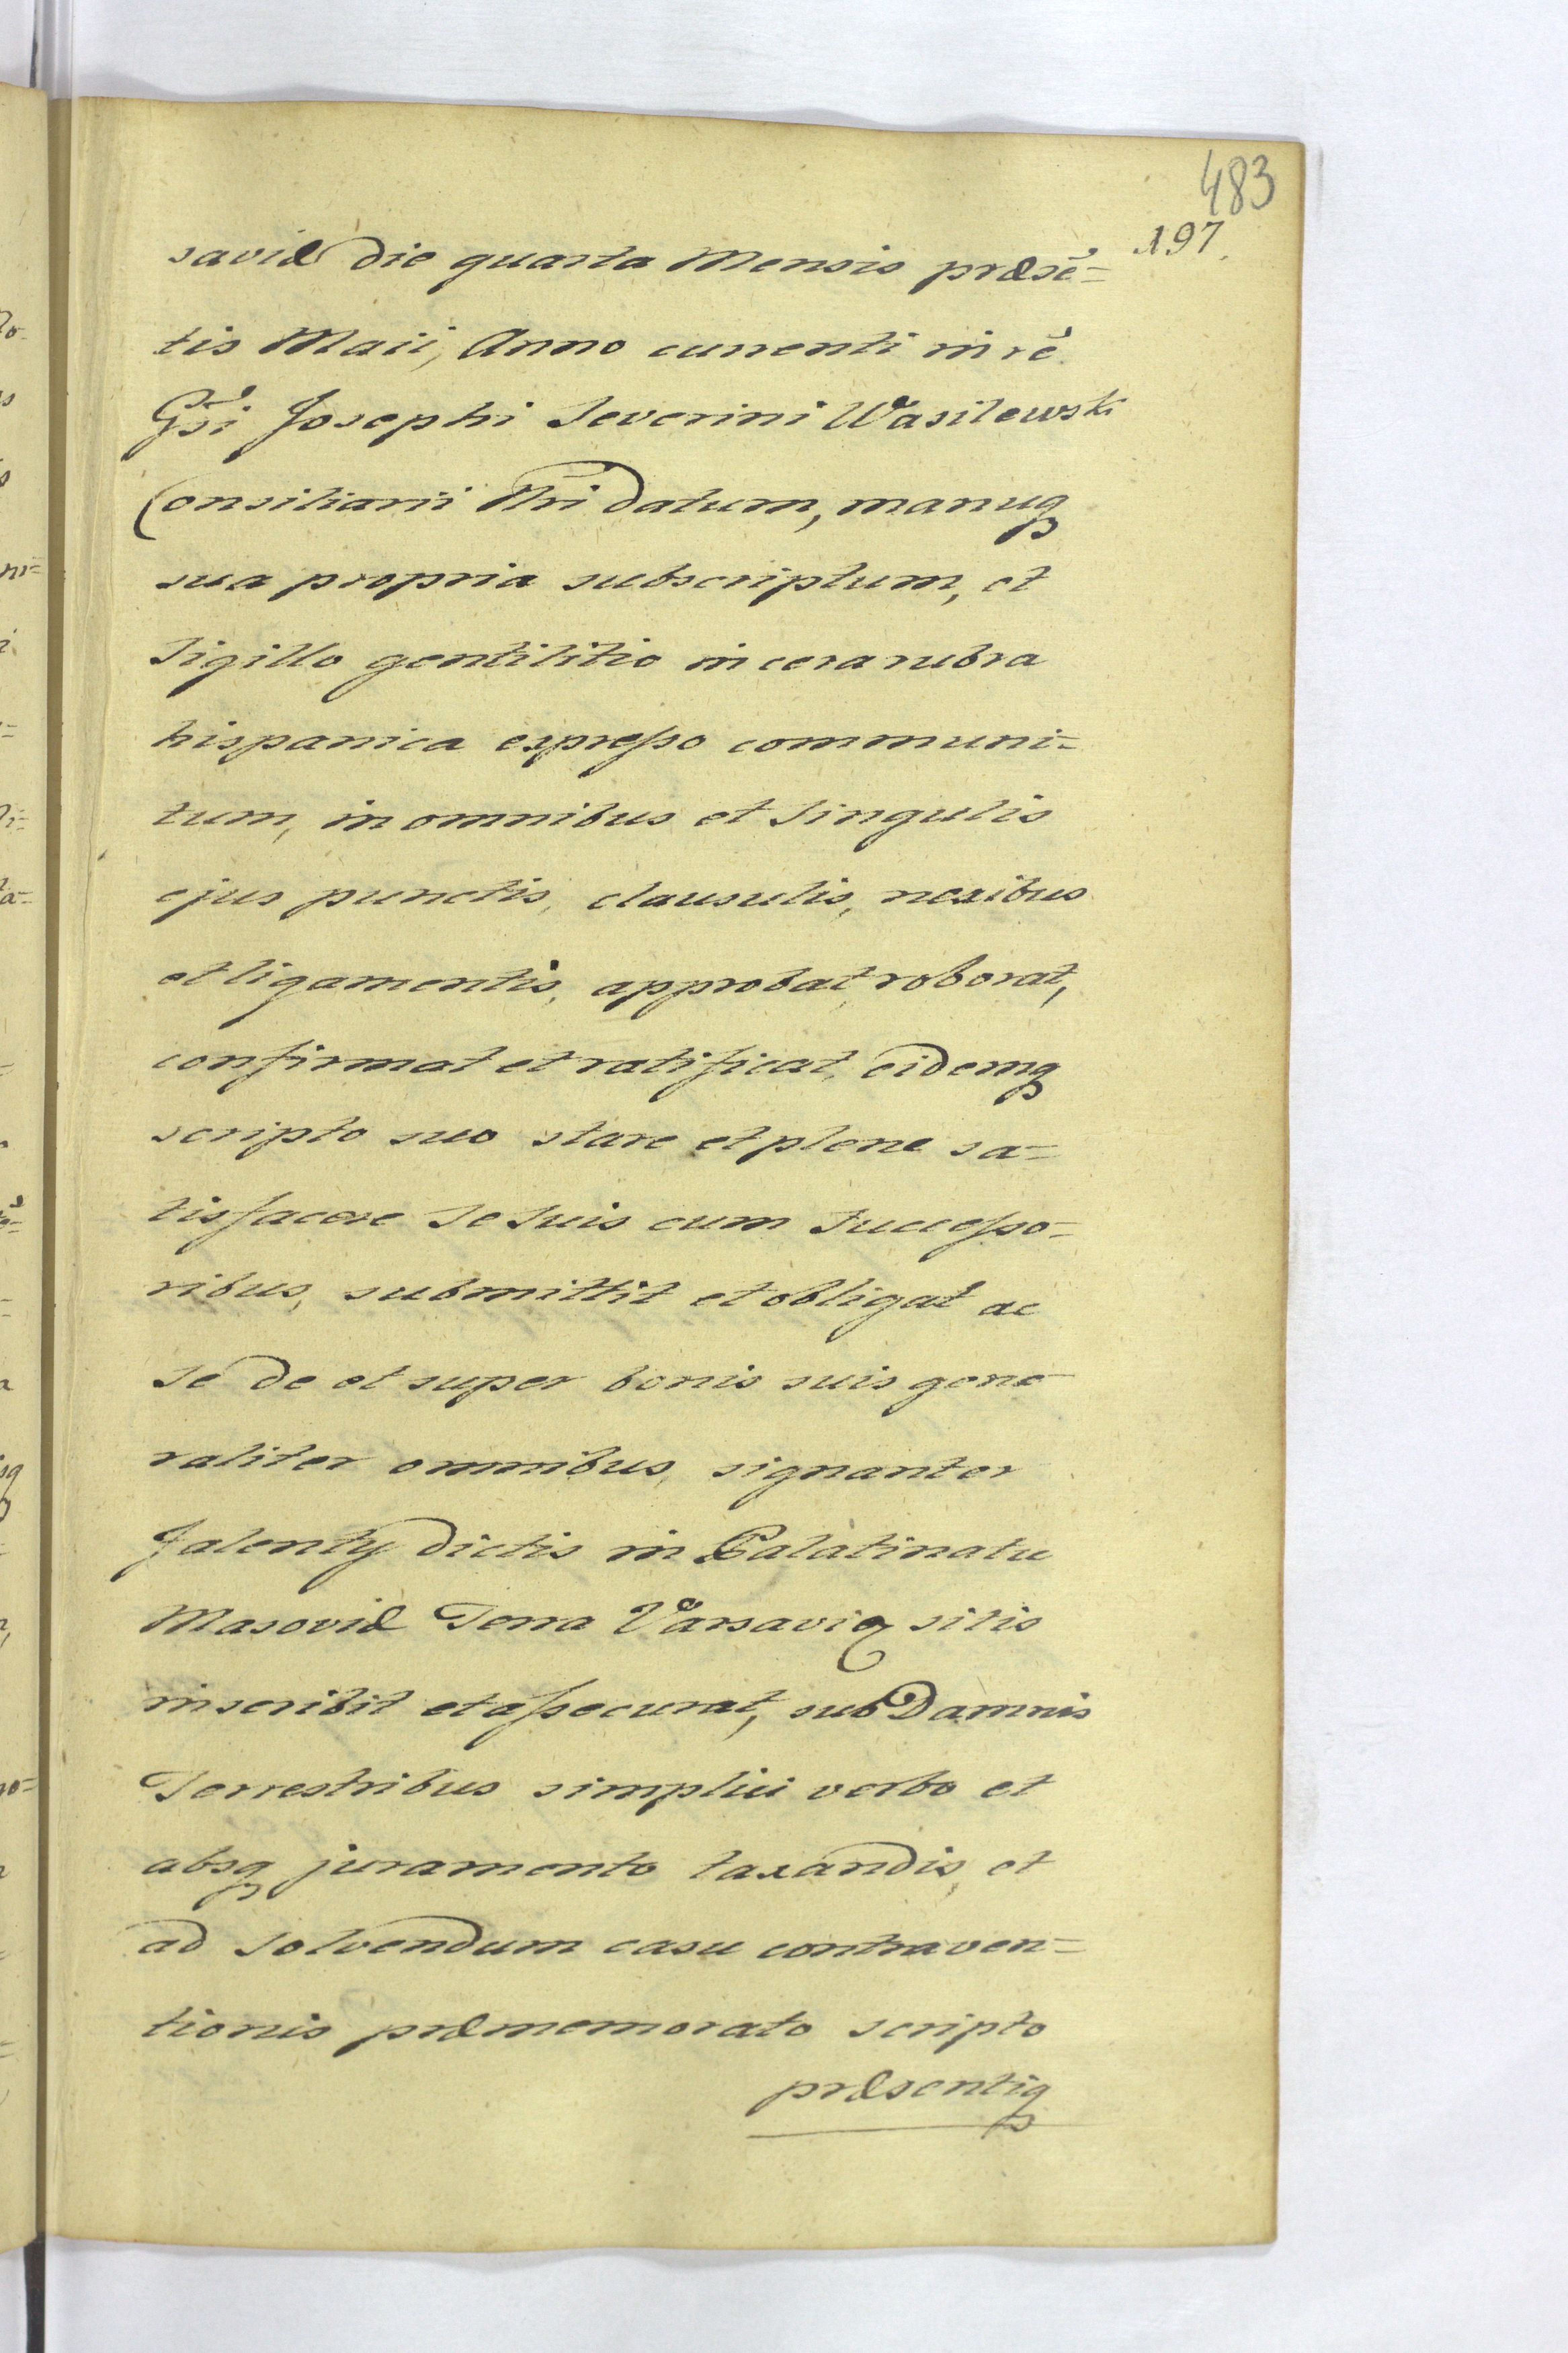 483
197.
saviæ die quarta Mensis præsē=
tis Maii, Anno currenti in rē
Gsi Josephi Severini Wasilewski
Consiliarii Nri datum, manuq
sua propria subscriptum, et
Sigillo gentilitio in cera rubra
hispanica expresso communi=
tum, in omnibus et Singulis
ejus punctis, clausulis, nexibus
et ligamentis, approbat, roborat,
confirmat et ratificat, eidemq
scripto suo stare et plene sa=
tisfacere Se Suis cum Successo=
ribus, submittit et obligat ac
Se de et super bonis suis gene
raliter omnibus, signanter
Jalenty dictis in Palatinatu
Masoviæ Terra Varsavię sitis
inscribit et assecurat, sub Damnis
Terrestribus simplici verbo et
absq juramento taxandis, et
ad Solvendum casu contraven=
tionis præmemorato scripto
præsentiq